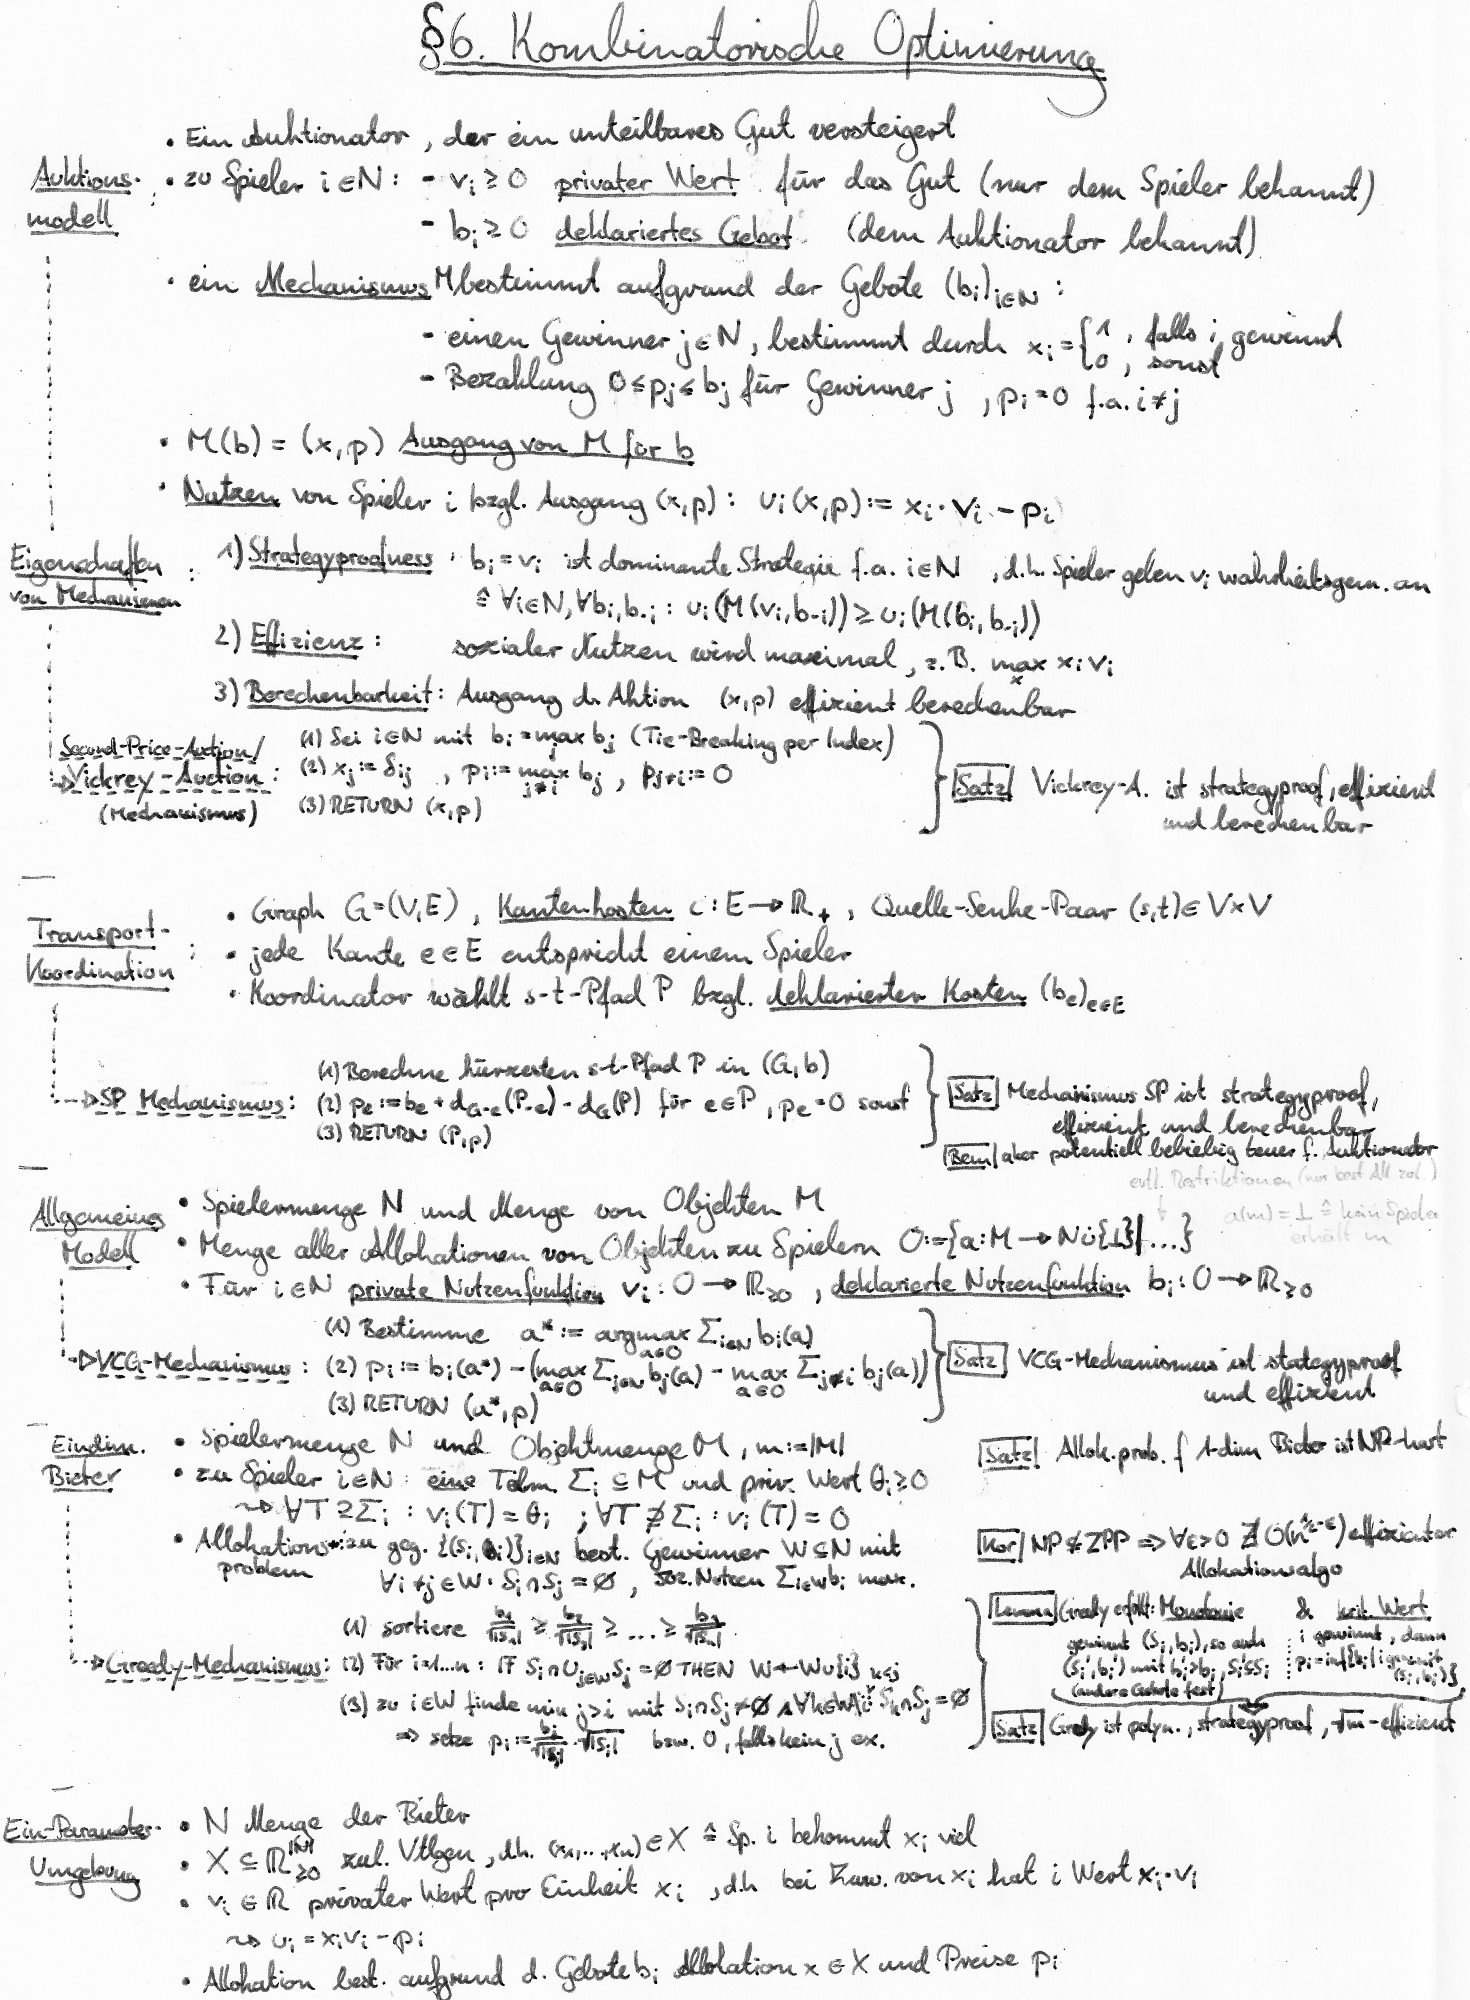 §6. Kombinatorische Optimierung
• Ein Auktionator, der ein unteilbares Gut versteigert
Auktions-
modell :
• zu Spieler i ∈ N : - vᵢ ≥ 0 privater Wert für das Gut (nur dem Spieler bekannt)
- bᵢ ≥ 0 deklariertes Gebot (dem Auktionator bekannt)
• ein Mechanismus M bestimmt aufgrund der Gebote (bᵢ)ᵢ∈N :
- einen Gewinner j ∈ N, bestimmt durch xᵢ = { 1, falls i gewinnt
0, sonst
- Bezahlung 0 ≤ pⱼ ≤ bⱼ für Gewinner j, pᵢ = 0 f.a. i ≠ j
• M(b) = (x,p) Ausgang von M für b
• Nutzen von Spieler i bzgl. Ausgang (x,p) : uᵢ(x,p) := xᵢ · vᵢ - pᵢ
Eigenschaften
von Mechanismen :
1) Strategyproofness : bᵢ = vᵢ ist dominante Strategie f.a. i ∈ N, d.h. Spieler geben vᵢ wahrheitsgem. an
≙ ∀i∈N, ∀bᵢ, b₋ᵢ : uᵢ(M(vᵢ, b₋ᵢ)) ≥ uᵢ(M(bᵢ, b₋ᵢ))
2) Effizienz : sozialer Nutzen wird maximal, z.B. max_x xᵢ vᵢ
3) Berechenbarkeit : Ausgang d. Aktion (x,p) effizient berechenbar
Second-Price-Auction/
Vickrey-Auction :
(Mechanismus)
(1) Sei i∈N mit bᵢ = max_j bⱼ (Tie-Breaking per Index)
(2) xⱼ := δᵢⱼ , pᵢ := max_{j≠i} bⱼ , p_{j≠i} := 0
(3) RETURN (x,p)
Satz Vickrey-A. ist strategyproof, effizient
und berechenbar
Transport-
Koordination :
• Graph G=(V,E), Kantenkosten c : E → ℝ₊, Quelle-Senke-Paar (s,t) ∈ V×V
• jede Kante e ∈ E entspricht einem Spieler
• Koordinator wählt s-t-Pfad P bzgl. deklarierter Kosten (bₑ)ₑ∈E
SP Mechanismus :
(1) Berechne kürzesten s-t-Pfad P in (G,b)
(2) pₑ := bₑ + d_{G-e}(P₋ₑ) - d_G(P) für e∈P, pₑ = 0 sonst
(3) RETURN (P,p)
Satz Mechanismus SP ist strategyproof,
effizient und berechenbar
Bem aber potentiell beliebig teuer f. Auktionator
evtl. Restriktionen (nur best. All. zul.)
a(m) = ⊥ ≙ kein Spieler
erhält m
Allgemeines
Modell
• Spielermenge N und Menge von Objekten M
• Menge aller Allokationen von Objekten zu Spielern O := {a : M → N ∪̇ {⊥} | ...}
• Für i ∈ N private Nutzenfunktion vᵢ : O → ℝ≥0, deklarierte Nutzenfunktion bᵢ : O → ℝ≥0
VCG-Mechanismus :
(1) Bestimme a* := argmax_{a∈O} Σᵢ∈N bᵢ(a)
(2) pᵢ := bᵢ(a*) - (max_{a∈O} Σⱼ∈N bⱼ(a) - max_{a∈O} Σ_{j≠i} bⱼ(a))
(3) RETURN (a*,p)
Satz VCG-Mechanismus ist stategyproof
und effizient
Eindim.
Bieter
• Spielermenge N und Objektmenge M, m := |M|
• zu Spieler i∈N eine Teilm. Σᵢ ⊆ M und priv. Wert θᵢ ≥ 0
⇝ ∀T ⊇ Σᵢ : vᵢ(T) = θᵢ ; ∀T ⊉ Σᵢ : vᵢ(T) = 0
• Allokations- : zu geg. {(Sᵢ, bᵢ)}ᵢ∈N best. Gewinner W ⊆ N mit
problem
∀i≠j∈W : Sᵢ∩Sⱼ = ∅, soz. Nutzen Σᵢ∈W bᵢ max.
Satz Allok.prob. f 1-dim Bieter ist NP-hart
Kor NP ⊄ ZPP ⟹ ∀ε>0 ∄ O(n^{½-ε}) effizienter
Allokationsalgo
Greedy-Mechanismus :
(1) sortiere b₁/√|S₁| ≥ b₂/√|S₂| ≥ ... ≥ bₙ/√|Sₙ|
(2) Für i=1...n : IF Sᵢ ∩ ∪ⱼ∈W Sⱼ = ∅ THEN W ← W∪{i}
(3) zu i∈W finde min j>i mit Sᵢ∩Sⱼ ≠ ∅ ∧ ∀k∈W\i, k<j : Sₖ∩Sⱼ = ∅
⟹ setze pᵢ := bⱼ/√|Sⱼ| · √|Sᵢ| bzw. 0, falls kein j ex.
Lemma Greedy erfüllt: Monotonie & krit. Wert
gewinnt (Sᵢ, bᵢ), so auch
(Sᵢ', bᵢ') mit bᵢ' > bᵢ, Sᵢ' ⊆ Sᵢ
(andere Gebote fest)
i gewinnt, dann
pᵢ = inf{bᵢ | i gewinnt
(Sᵢ, bᵢ)}
Satz Gredy ist polyn., strategyproof, √m-effizient
Ein-Parameter-
Umgebung
• N Menge der Bieter
• X ⊆ ℝ≥0^|N| zul. Vtlgen, d.h. (x₁,...,xₙ) ∈ X ≙ Sp. i bekommt xᵢ viel
• vᵢ ∈ ℝ privater Wert pro Einheit xᵢ, d.h bei Zuw. von xᵢ hat i Wert xᵢ·vᵢ
⇝ uᵢ = xᵢvᵢ - pᵢ
• Allokation best. aufgrund d. Gebote bᵢ Allokation x ∈ X und Preise pᵢ